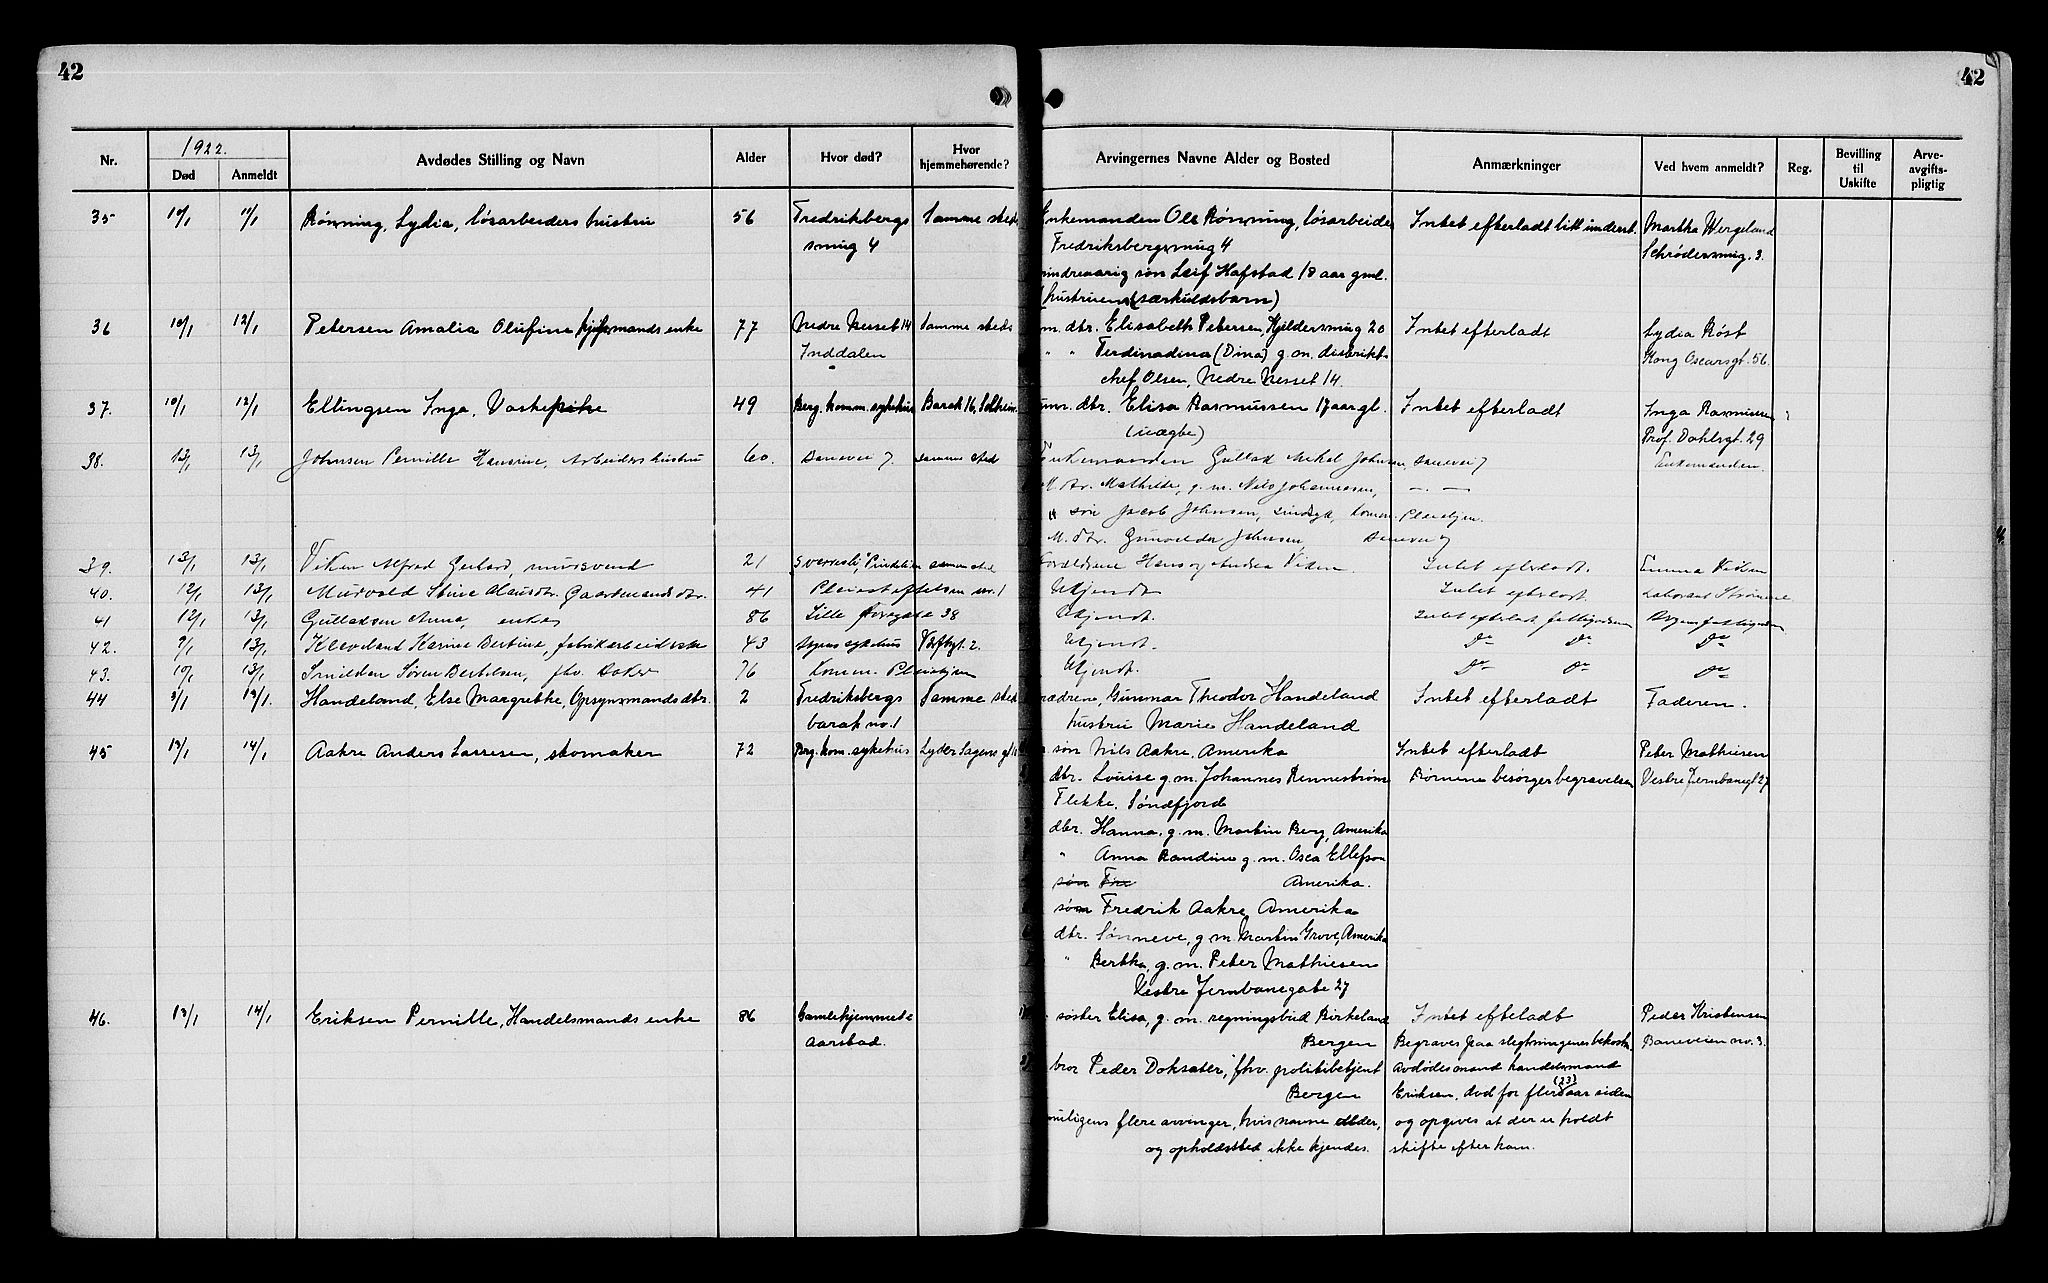 42
42
1922.
Nr.
Død
Anmeldt
Avdødes Stilling og Navn
Alder
Hvor død?
Hvor hjemmehørende?
Arvingernes Navne Alder og Bosted
Anmærkninger
Ved hvem anmeldt?
Reg.
Bevilling til Uskifte
Arve-avgifts-pligtig
35 10/1 11/1 Rønning, Lydia, løsarbeiders hustru 56 Fredrikbergs Samme sted Enkemanden Ole Rønning, løsarbeider Intet efterladt litt underst. Martha Wergeland
smug 4 Fredriksbergsmug 4 Schrødersmug. 3.
mindreaarig søn Leif Hafstad 18 aar gml.
(hustruens særkuldsbarn)
36 10/1 12/1 Petersen Amalia Olufine mands enke 77 Nedre Nesset 14 Samme sted m. dtr. Elisabeth Petersen, Kjeldersmug 20 Intet efterladt Lydia Røst
Inddalen " " Ferdinadina (Dina) g.m. distrikt- Kong Oscarsgt. 56.
chef Olsen, Nedre Nesset 14.
37. 10/1 12/1 Ellingsen Inga, Vaskepike 49 Berg. komm. sykehus Barak 16, Solheim. umr. dtr. Elisa Rasmussen 17 aar gl. Intet efterladt Inga Rasmussen
(uægte) Prof. Dahlsgt. 29
38. 13/1 13/1 Johnsen Pernille Hansine, Arbeiders hustru 60. Banevei 7. samme sted Enkemanden Johnsen Banevei 7 Enkemanden.
M. dtr. Mathilde, g.m. Nils Johannesen, — " —
" søn Jacob Johnsen, sindsyk, komm. Pleiehjem.
M. dtr. Johnsen Banevei 7
39. 13/1 13/1 Viken Alfred Gerhard, mursvend 21 samme sted Forældrene Hans og Andrea Viken. Intet efterladt. Emma Viken
40. 12/1 13/1 Murvold Stine Clausdtr. Gaardmandsdtr. 41 Pleiestiftelsen no. 1 Ukjendt Intet efterladt.
41 12/1 13/1 Gulladsen Anna, enke 86 Lille 38 Ukjendt. Intet efterladt fattigvæsen
42. 9/1 13/1 Kleveland Karine Bertine, fabrikarbeiderske 43 sykehus Verftsgt. 2. Ukjendt. Do Do Do
43. 10/1 13/1 Smilden Søren Bertelsen, fhv. 76 Komm. Pleiehjem Ukjendt. Do Do Do
44 3/1 13/1. Handeland, Else Margrethe, Opsynsmandsdtr. 2 Fredriksbergs Samme sted Forældrene, Gunnar Theodor Handeland Intet efterladt Faderen.
barak no. 1 hustru Marie Handeland
45 13/1 14/1 Aakre Anders Lassesen, skomaker 72 Brg. kom. sykehus Lyder Sagens gt 11 søn Nils Aakre, Amerika Intet efterladt Peter Mathiesen
dtr. Louise g.m. Johannes Rennestrøm Børnene besørger begravelsen Vestre Jernbanegt 27
Flekke, Søndfjord
dtr. Hanna, g.m. Martin Berg, Amerika
" Anna Randine g.m. Osca Ellefson
søn Fre Amerika.
søn Fredrik Aakre, Amerika
dtr. Sønneve, g.m. Martin Grove, Amerika
" Bertha, g.m. Peter Mathiesen
Vestre Jernbanegate 27
46. 13/1 14/1 Eriksen Pernille, Handelsmands enke 86 Gamlehjemmet søster Elisa, g.m. regningsbud Birkeland Intet efteladt Peder Kristensen
Aarstad. Bergen Begraves paa slegtningenes bekostn. Baneveien no. 3.
bror Peder Doksæter, fhv. politibetjent Avdødes mand handelsmand
Bergen Eriksen, død for flere (23) aar siden
muligens flere arvinger, hvis navne alder, og opgives at der er holdt
og opholdssted ikke kjendes. skifte efter ham.